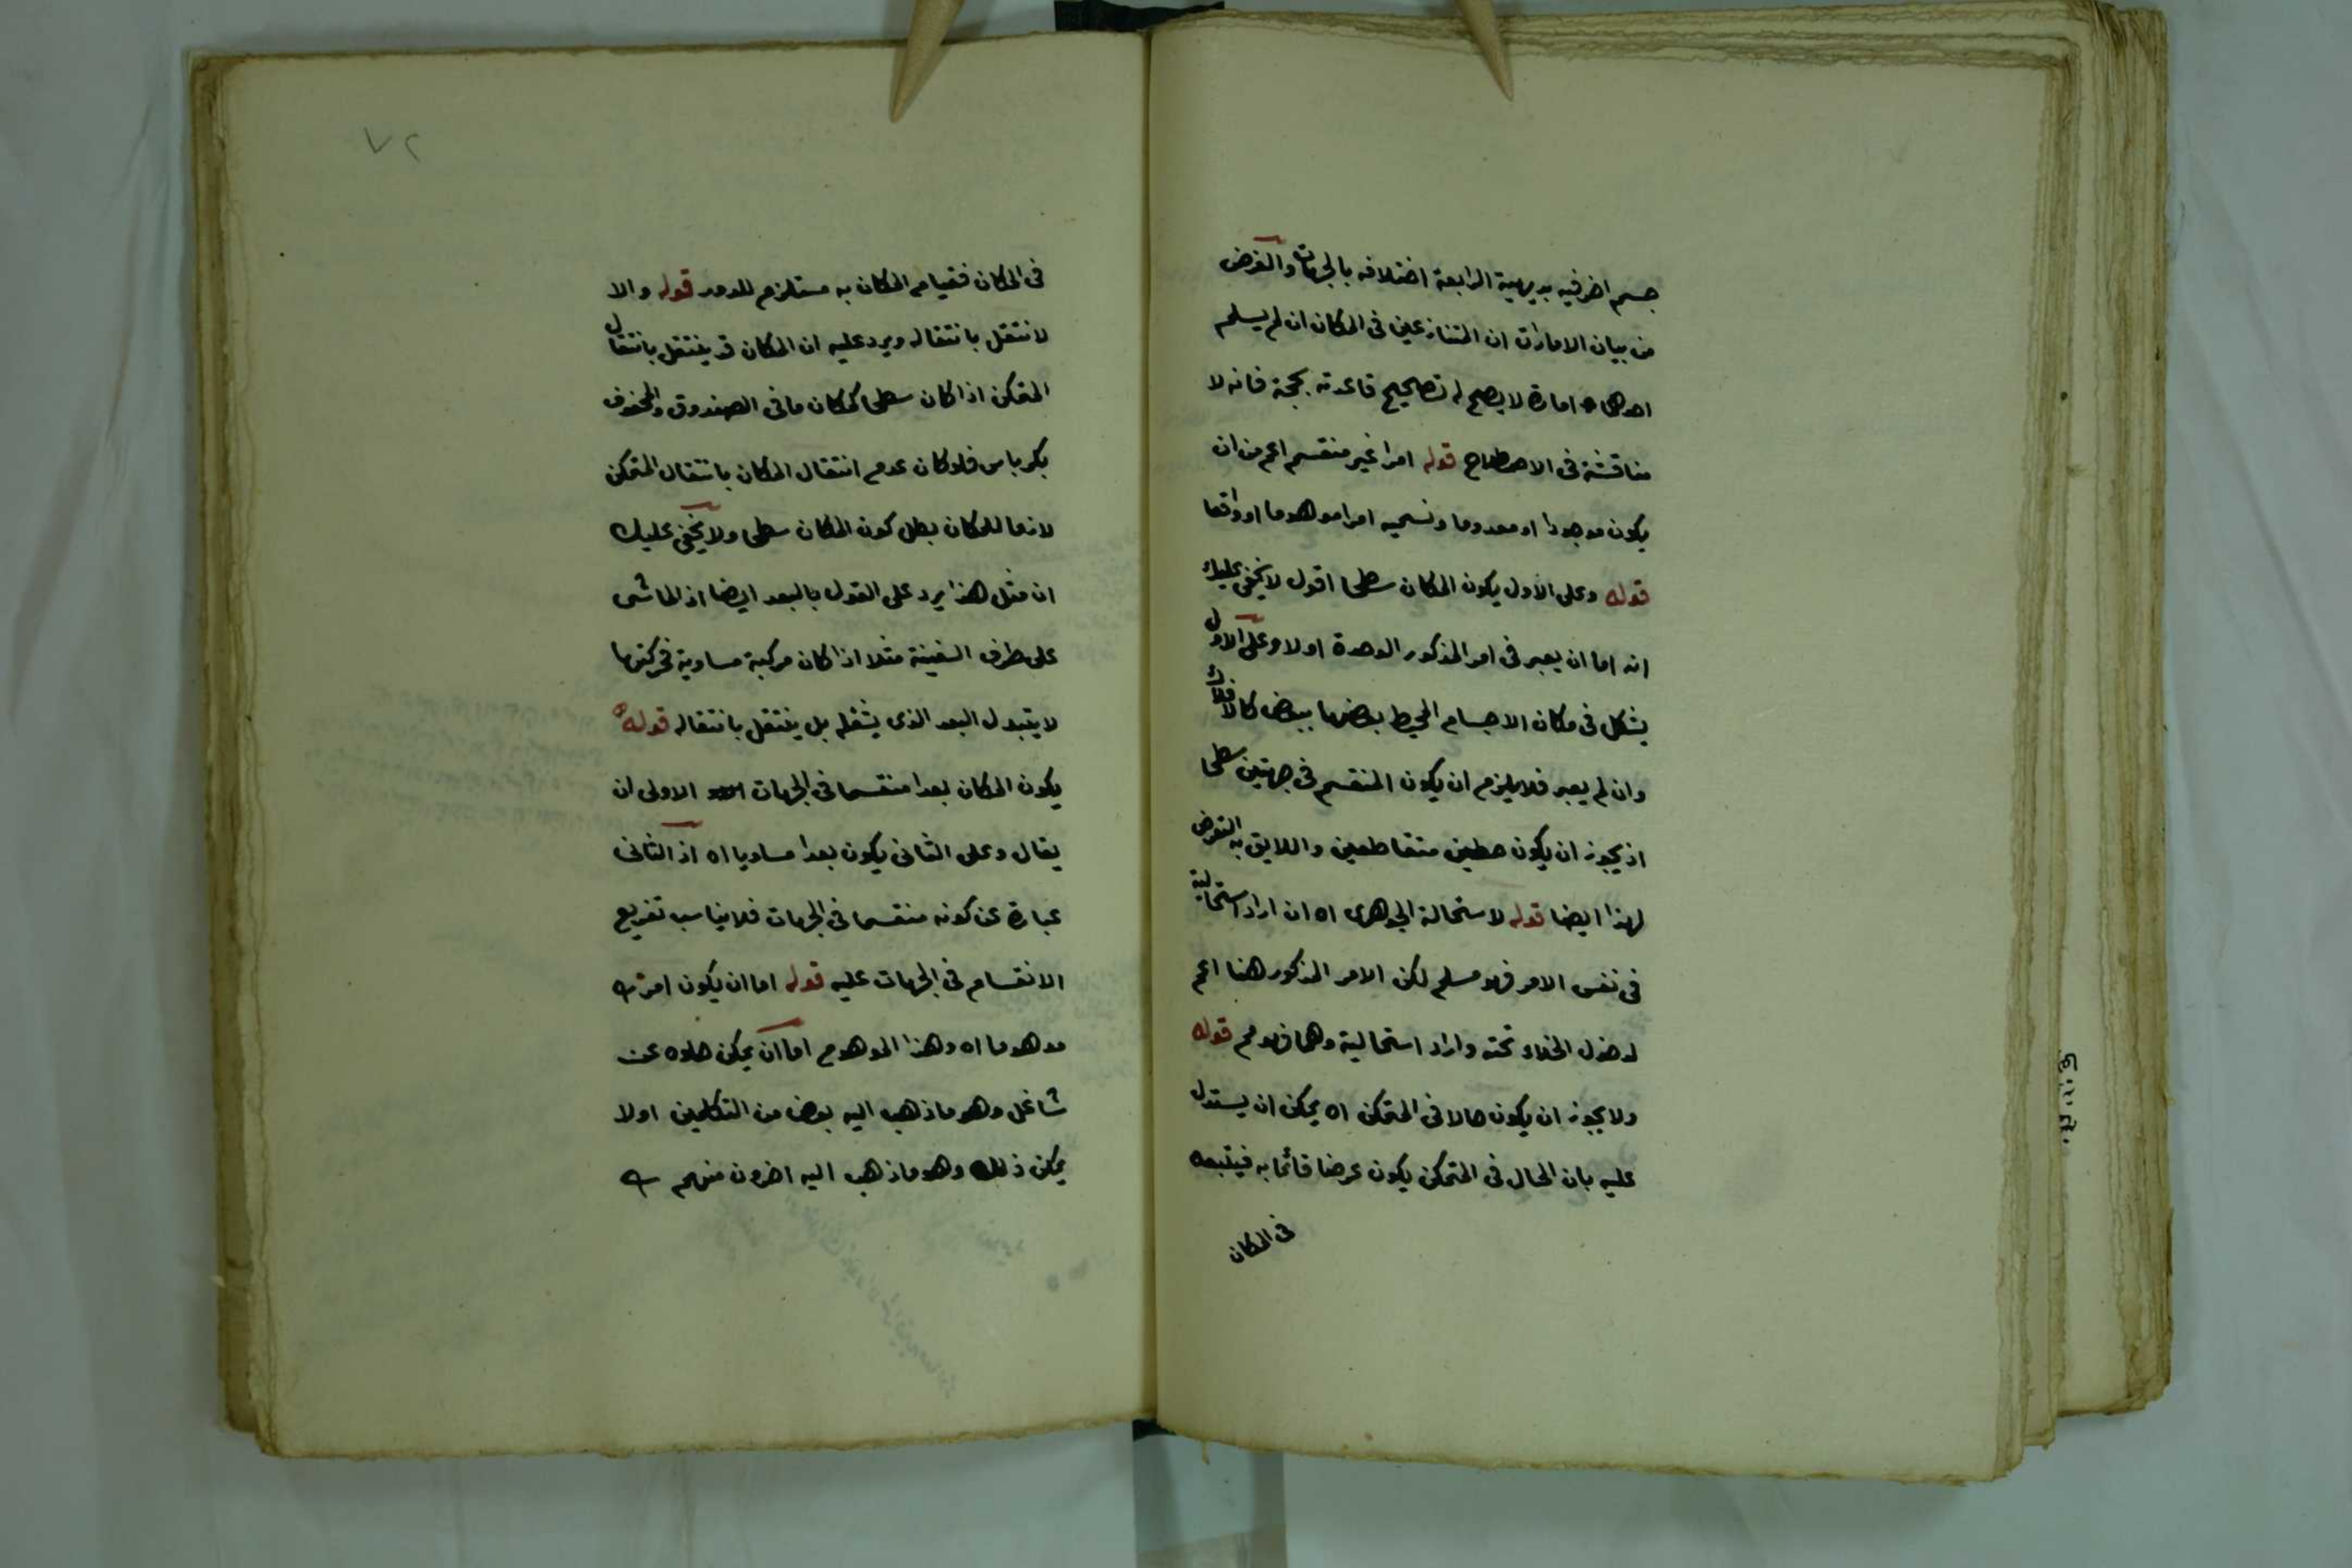 جسم اخر فيه بديهية الرابعة اختلافه بالجهات والغرض
من بيان الامارات ان المتنازعين فى المكان ان لم يسلم
احدهما امارة لا يصح له تصحيح قاعدته بحجة فانه لا
مناقشة فى الاصطلاح قوله امرا غير منقسم اعم من ان
يكون موجودا او معدوما ونسميه امرا موهوما او واقعا
قوله وعلى الاول يكون المكان سطحا اقول لا يخفى عليك
انه اما ان يعبر فى امر المذكور الوحدة اولا وعلى الاول
يشكل فى مكان الاجسام المحيط بعضها ببعض كالافلاك
وان لم يعبر فلا يلزم ان يكون المنقسم فى جهتين سطحا
اذ يجوز ان يكون خطين متقاطعين واللايق به التعرض
لهذا ايضا قوله لاستحالة الجوهرى اه ان اراد استحالية
فى نفس الامر فهو مسلم لكن الامر المذكور هنا اعم
لدخول الخلاء تحته واراد استحالية وهما فهو مم قوله
ولا يجوز ان يكون حالا فى المتمكن اه يمكن ان يستدل
عليه بان الحال فى المتمكن يكون عرضا قائما به فيتبعه
فى المكان
٧٢
فى المكان فقيام المكان به مستلزم للدور قوله والا
لانتقل بانتقاله ويرد عليه ان المكان قد ينتقل بانتقال
المتمكن اذا كان سطحا كمكان ما فى الصندوق والمحفوف
بكرباس فلو كان عدم انتقال المكان بانتقال المتمكن
لازما للمكان بطل كون المكان سطحا ولا يخفى عليك
ان مثل هذا يرد على القول بالبعد ايضا اذ الماشى
على طرف السفينة مثلا اذا كان مركبة مساوية فحركتها
لا يتبدل البعد الذى يشغله بل ينتقل بانتقاله قوله
يكون المكان بعدا منقسما فى الجهات الاولى ان
يقال وعلى الثانى يكون بعدا مساويا اه اذ الثانى
عبارة عن كونه منقسما فى الجهات فلا يناسب تفريع
الانقسام فى الجهات عليه قوله اما ان يكون امرا
موهوما اه وهذا الموهوم اما ان يمكن خلوه عن
شاغل وهو ما ذهب اليه بعض من المتكلمين اولا
يمكن ذلك وهو ما ذهب اليه اخرون منهم